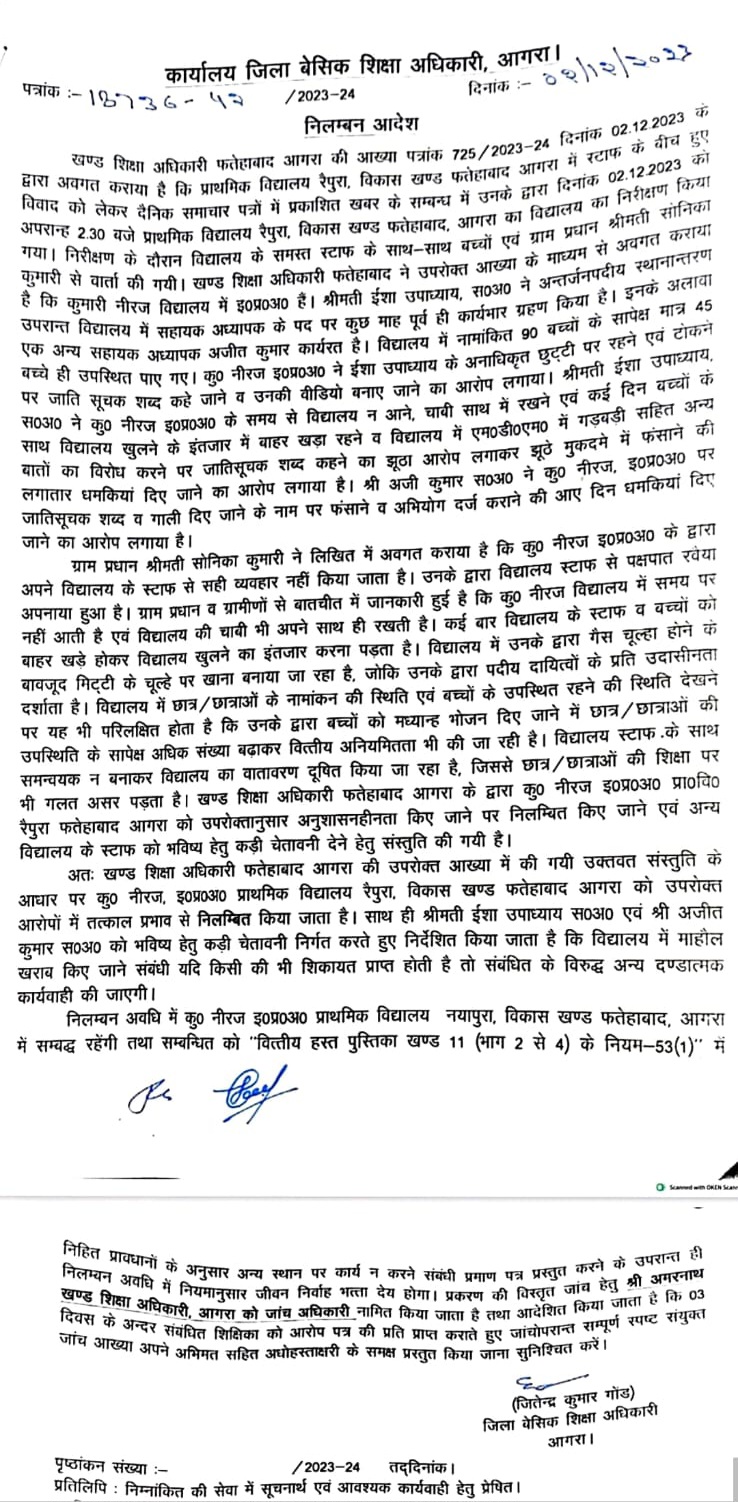 कार्यालय जिला बेसिक शिक्षा अधिकारी, आगरा।
पत्रांक :- 18736-42 /2023-24 दिनांक :- 02/12/2023
निलम्बन आदेश
खण्ड शिक्षा अधिकारी फतेहाबाद आगरा की आख्या पत्रांक 725/2023-24 दिनांक 02.12.2023 के
द्वारा अवगत कराया है कि प्राथमिक विद्यालय रैपुरा, विकास खण्ड फतेहाबाद आगरा में स्टाफ के बीच हुए
विवाद को लेकर दैनिक समाचार पत्रों में प्रकाशित खबर के सम्बन्ध में उनके द्वारा दिनांक 02.12.2023 को
अपरान्ह 2.30 बजे प्राथमिक विद्यालय रैपुरा, विकास खण्ड फतेहाबाद, आगरा का विद्यालय का निरीक्षण किया
गया। निरीक्षण के दौरान विद्यालय के समस्त स्टाफ के साथ-साथ बच्चों एवं ग्राम प्रधान श्रीमती सोनिका
कुमारी से वार्ता की गयी। खण्ड शिक्षा अधिकारी फतेहाबाद ने उपरोक्त आख्या के माध्यम से अवगत कराया
है कि कुमारी नीरज विद्यालय में इ०प्र०अ० हैं। श्रीमती ईशा उपाध्याय, स०अ० ने अन्तर्जनपदीय स्थानान्तरण
उपरान्त विद्यालय में सहायक अध्यापक के पद पर कुछ माह पूर्व ही कार्यभार ग्रहण किया है। इनके अलावा
एक अन्य सहायक अध्यापक अजीत कुमार कार्यरत है। विद्यालय में नामांकित 90 बच्चों के सापेक्ष मात्र 45
बच्चे ही उपस्थित पाए गए। कु० नीरज इ०प्र०अ० ने ईशा उपाध्याय के अनाधिकृत छुट्टी पर रहने एवं टोकने
पर जाति सूचक शब्द कहे जाने व उनकी वीडियो बनाए जाने का आरोप लगाया। श्रीमती ईशा उपाध्याय,
स०अ० ने कु० नीरज इ०प्र०अ० के समय से विद्यालय न आने, चाबी साथ में रखने एवं कई दिन बच्चों के
साथ विद्यालय खुलने के इंतजार में बाहर खड़ा रहने व विद्यालय में एम०डी०एम० में गड़बड़ी सहित अन्य
बातों का विरोध करने पर जातिसूचक शब्द कहने का झूठा आरोप लगाकर झूठे मुकदमे में फंसाने की
लगातार धमकियां दिए जाने का आरोप लगाया है। श्री अजी कुमार स०अ० ने कु० नीरज, इ०प्र०अ० पर
जातिसूचक शब्द व गाली दिए जाने के नाम पर फंसाने व अभियोग दर्ज कराने की आए दिन धमकियां दिए
जाने का आरोप लगाया है।
ग्राम प्रधान श्रीमती सोनिका कुमारी ने लिखित में अवगत कराया है कि कु० नीरज इ०प्र०अ० के द्वारा
अपने विद्यालय के स्टाफ से सही व्यवहार नहीं किया जाता है। उनके द्वारा विद्यालय स्टाफ से पक्षपात रवैया
अपनाया हुआ है। ग्राम प्रधान व ग्रामीणों से बातचीत में जानकारी हुई है कि कु० नीरज विद्यालय में समय पर
नहीं आती है एवं विद्यालय की चाबी भी अपने साथ ही रखती है। कई बार विद्यालय के स्टाफ व बच्चों को
बाहर खड़े होकर विद्यालय खुलने का इंतजार करना पड़ता है। विद्यालय में उनके द्वारा गैस चूल्हा होने के
बावजूद मिट्टी के चूल्हे पर खाना बनाया जा रहा है, जोकि उनके द्वारा पदीय दायित्वों के प्रति उदासीनता
दर्शाता है। विद्यालय में छात्र/छात्राओं के नामांकन की स्थिति एवं बच्चों के उपस्थित रहने की स्थिति देखने
पर यह भी परिलक्षित होता है कि उनके द्वारा बच्चों को मध्यान्ह भोजन दिए जाने में छात्र/छात्राओं की
उपस्थिति के सापेक्ष अधिक संख्या बढ़ाकर वित्तीय अनियमितता भी की जा रही है। विद्यालय स्टाफ के साथ
समन्वयक न बनाकर विद्यालय का वातावरण दूषित किया जा रहा है, जिससे छात्र/छात्राओं की शिक्षा पर
भी गलत असर पड़ता है। खण्ड शिक्षा अधिकारी फतेहाबाद आगरा के द्वारा कु० नीरज इ०प्र०अ० प्रा०वि०
रैपुरा फतेहाबाद आगरा को उपरोक्तानुसार अनुशासनहीनता किए जाने पर निलम्बित किए जाने एवं अन्य
विद्यालय के स्टाफ को भविष्य हेतु कड़ी चेतावनी देने हेतु संस्तुति की गयी है।
अतः खण्ड शिक्षा अधिकारी फतेहाबाद आगरा की उपरोक्त आख्या में की गयी उक्तवत संस्तुति के
आधार पर कु० नीरज, इ०प्र०अ० प्राथमिक विद्यालय रैपुरा, विकास खण्ड फतेहाबाद आगरा को उपरोक्त
आरोपों में तत्काल प्रभाव से निलम्बित किया जाता है। साथ ही श्रीमती ईशा उपाध्याय स०अ० एवं श्री अजीत
कुमार स०अ० को भविष्य हेतु कड़ी चेतावनी निर्गत करते हुए निर्देशित किया जाता है कि विद्यालय में माहौल
खराब किए जाने संबंधी यदि किसी की भी शिकायत प्राप्त होती है तो संबंधित के विरुद्ध अन्य दण्डात्मक
कार्यवाही की जाएगी।
निलम्बन अवधि में कु० नीरज इ०प्र०अ० प्राथमिक विद्यालय नयापुरा, विकास खण्ड फतेहाबाद, आगरा
में सम्बद्ध रहेंगी तथा सम्बन्धित को "वित्तीय हस्त पुस्तिका खण्ड 11 (भाग 2 से 4) के नियम-53(1)" में
Scanned with OKEN Scanner
निहित प्रावधानों के अनुसार अन्य स्थान पर कार्य न करने संबंधी प्रमाण पत्र प्रस्तुत करने के उपरान्त ही
निलम्बन अवधि में नियमानुसार जीवन निर्वाह भत्ता देय होगा। प्रकरण की विस्तृत जांच हेतु श्री अमरनाथ
खण्ड शिक्षा अधिकारी, आगरा को जांच अधिकारी नामित किया जाता है तथा आदेशित किया जाता है कि 03
दिवस के अन्दर संबंधित शिक्षिका को आरोप पत्र की प्रति प्राप्त कराते हुए जांचोपरान्त सम्पूर्ण स्पष्ट संयुक्त
जांच आख्या अपने अभिमत सहित अधोहस्ताक्षरी के समक्ष प्रस्तुत किया जाना सुनिश्चित करें।
(जितेन्द्र कुमार गोंड)
जिला बेसिक शिक्षा अधिकारी
आगरा।
पृष्ठांकन संख्या :- /2023-24 तद्दिनांक।
प्रतिलिपि : निम्नांकित की सेवा में सूचनार्थ एवं आवश्यक कार्यवाही हेतु प्रेषित।